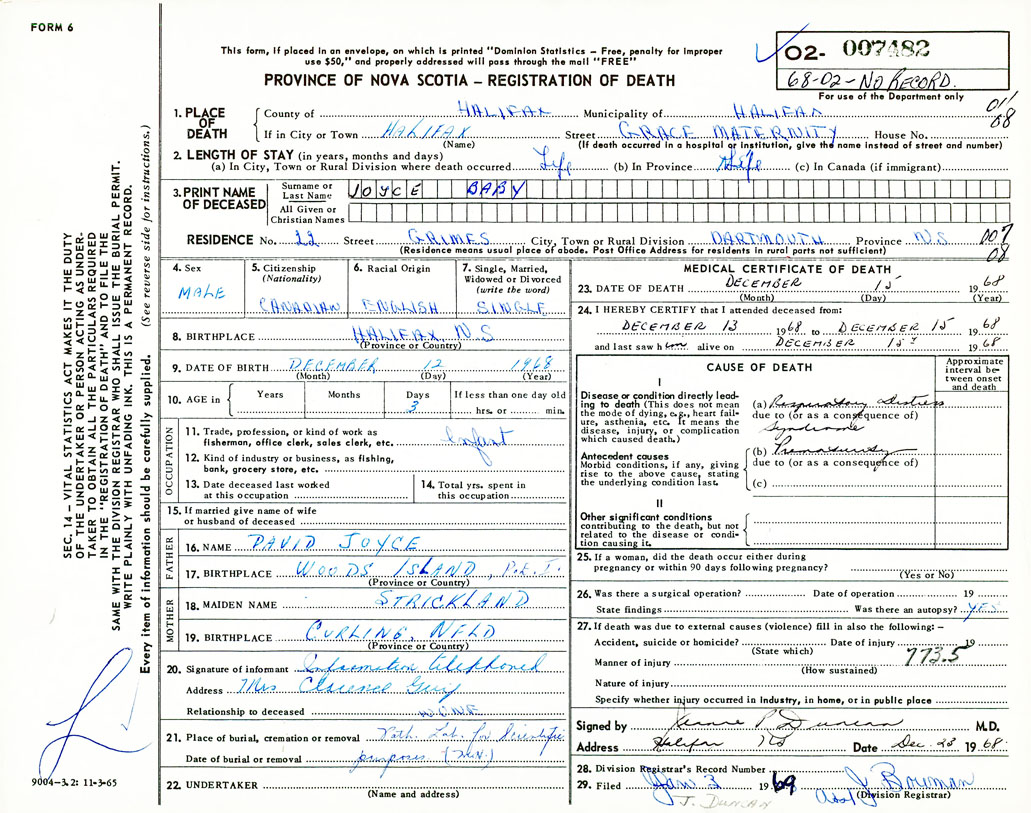 FORM 6
This form, if placed in an envelope, on which is printed "Dominion Statistics – Free, penalty for improper
use $50," and properly addressed will pass through the mail "FREE"
PROVINCE OF NOVA SCOTIA – REGISTRATION OF DEATH
O2- 007482
68-02-NO RECORD.
For use of the Department only
011
68
SEC. 14 – VITAL STATISTICS ACT MAKES IT THE DUTY
OF THE UNDERTAKER OR PERSON ACTING AS UNDER-
TAKER TO OBTAIN ALL THE PARTICULARS REQUIRED
IN THE "REGISTRATION OF DEATH" AND TO FILE THE
SAME WITH THE DIVISION REGISTRAR WHO SHALL ISSUE THE BURIAL PERMIT.
WRITE PLAINLY WITH UNFADING INK. THIS IS A PERMANENT RECORD.
Every item of information should be carefully supplied. (See reverse side for instructions.)
1. PLACE OF DEATH
County of HALIFAX Municipality of HALIFAX
If in City or Town HALIFAX Street GRACE MATERNITY House No.
(Name) (If death occurred in a hospital or institution, give the name instead of street and number)
2. LENGTH OF STAY (in years, months and days)
(a) In City, Town or Rural Division where death occurred Life (b) In Province Life (c) In Canada (if immigrant)
3. PRINT NAME OF DECEASED
Surname or Last Name JOYCE BABY
All Given or Christian Names
RESIDENCE No. 22 Street GRIMES City, Town or Rural Division DARTMOUTH Province N.S
(Residence means usual place of abode. Post Office Address for residents in rural parts not sufficient)
007
08
4. Sex
MALE
5. Citizenship
(Nationality)
CANADIAN
6. Racial Origin
ENGLISH
7. Single, Married,
Widowed or Divorced
(write the word)
SINGLE
8. BIRTHPLACE HALIFAX N.S
(Province or Country)
9. DATE OF BIRTH DECEMBER 12 1968
(Month) (Day) (Year)
10. AGE in
Years Months Days If less than one day old
3 hrs. or min.
OCCUPATION
11. Trade, profession, or kind of work as
fisherman, office clerk, sales clerk, etc. Infant
12. Kind of industry or business, as fishing,
bank, grocery store, etc.
13. Date deceased last worked
at this occupation
14. Total yrs. spent in
this occupation
15. If married give name of wife
or husband of deceased
FATHER
16. NAME DAVID JOYCE
17. BIRTHPLACE WOODS ISLAND, P.E.I.
(Province or Country)
MOTHER
18. MAIDEN NAME STRICKLAND
19. BIRTHPLACE CURLING, NFLD
(Province or Country)
20. Signature of informant Information telephoned
Address Mrs Clarence
Relationship to deceased NONE
21. Place of burial, cremation or removal Path. Lab. for Scientific
Date of burial or removal purposes
22. UNDERTAKER
(Name and address)
9004-3.2: 11-3-65
MEDICAL CERTIFICATE OF DEATH
23. DATE OF DEATH DECEMBER 15 1968
(Month) (Day) (Year)
24. I HEREBY CERTIFY that I attended deceased from:
DECEMBER 13 1968 to DECEMBER 15 1968
and last saw h alive on DECEMBER 15 1968
CAUSE OF DEATH
Approximate
interval be-
tween onset
and death
I
Disease or condition directly lead-
ing to death (This does not mean
the mode of dying, e.g., heart fail-
ure, asthenia, etc. It means the
disease, injury, or complication
which caused death.)
(a) Respiratory Distress
due to (or as a consequence of)
Syndrome
Antecedent causes
Morbid conditions, if any, giving
rise to the above cause, stating
the underlying condition last.
(b) Prematurity
due to (or as a consequence of)
(c)
II
Other significant conditions
contributing to the death, but not
related to the disease or condi-
tion causing it.
25. If a woman, did the death occur either during
pregnancy or within 90 days following pregnancy?
(Yes or No)
26. Was there a surgical operation? Date of operation 19
State findings Was there an autopsy? YES
27. If death was due to external causes (violence) fill in also the following: –
Accident, suicide or homicide? Date of injury 19
(State which) 773.5
Manner of injury
(How sustained)
Nature of injury
Specify whether injury occurred in industry, in home, or in public place
Signed by P. Duncan M.D.
Address Halifax NS Date Dec. 23 1968.
28. Division Registrar's Record Number
29. Filed Jan 3 1969 Asst J. Bowman
J. DUNCAN (Division Registrar)